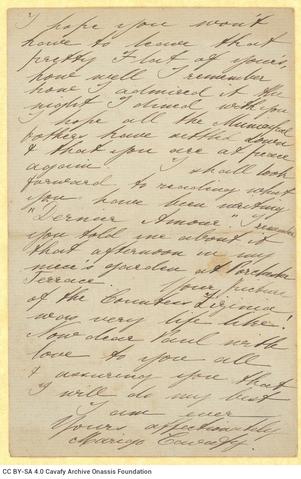 I hope you won't
have to leave that
pretty Flat of yours,
how well I remember
how I admired it the
night I dined with you
I hope all the Municipal
bothers have settled down
& that you are at peace
again. I shall look
forward to reading what
you have been writing
"Dernier Amour" I remember
you told me about it
that afternoon in my
niece's garden at Porchester
Terrace. Your picture
of the Countess
was very life like!
Now dear Paul with
love to you all
& assuring you that
I will do my best
I am ever
Yours affectionately
Marigo Cavafy.
CC BY-SA 4.0 Cavafy Archive Onassis Foundation